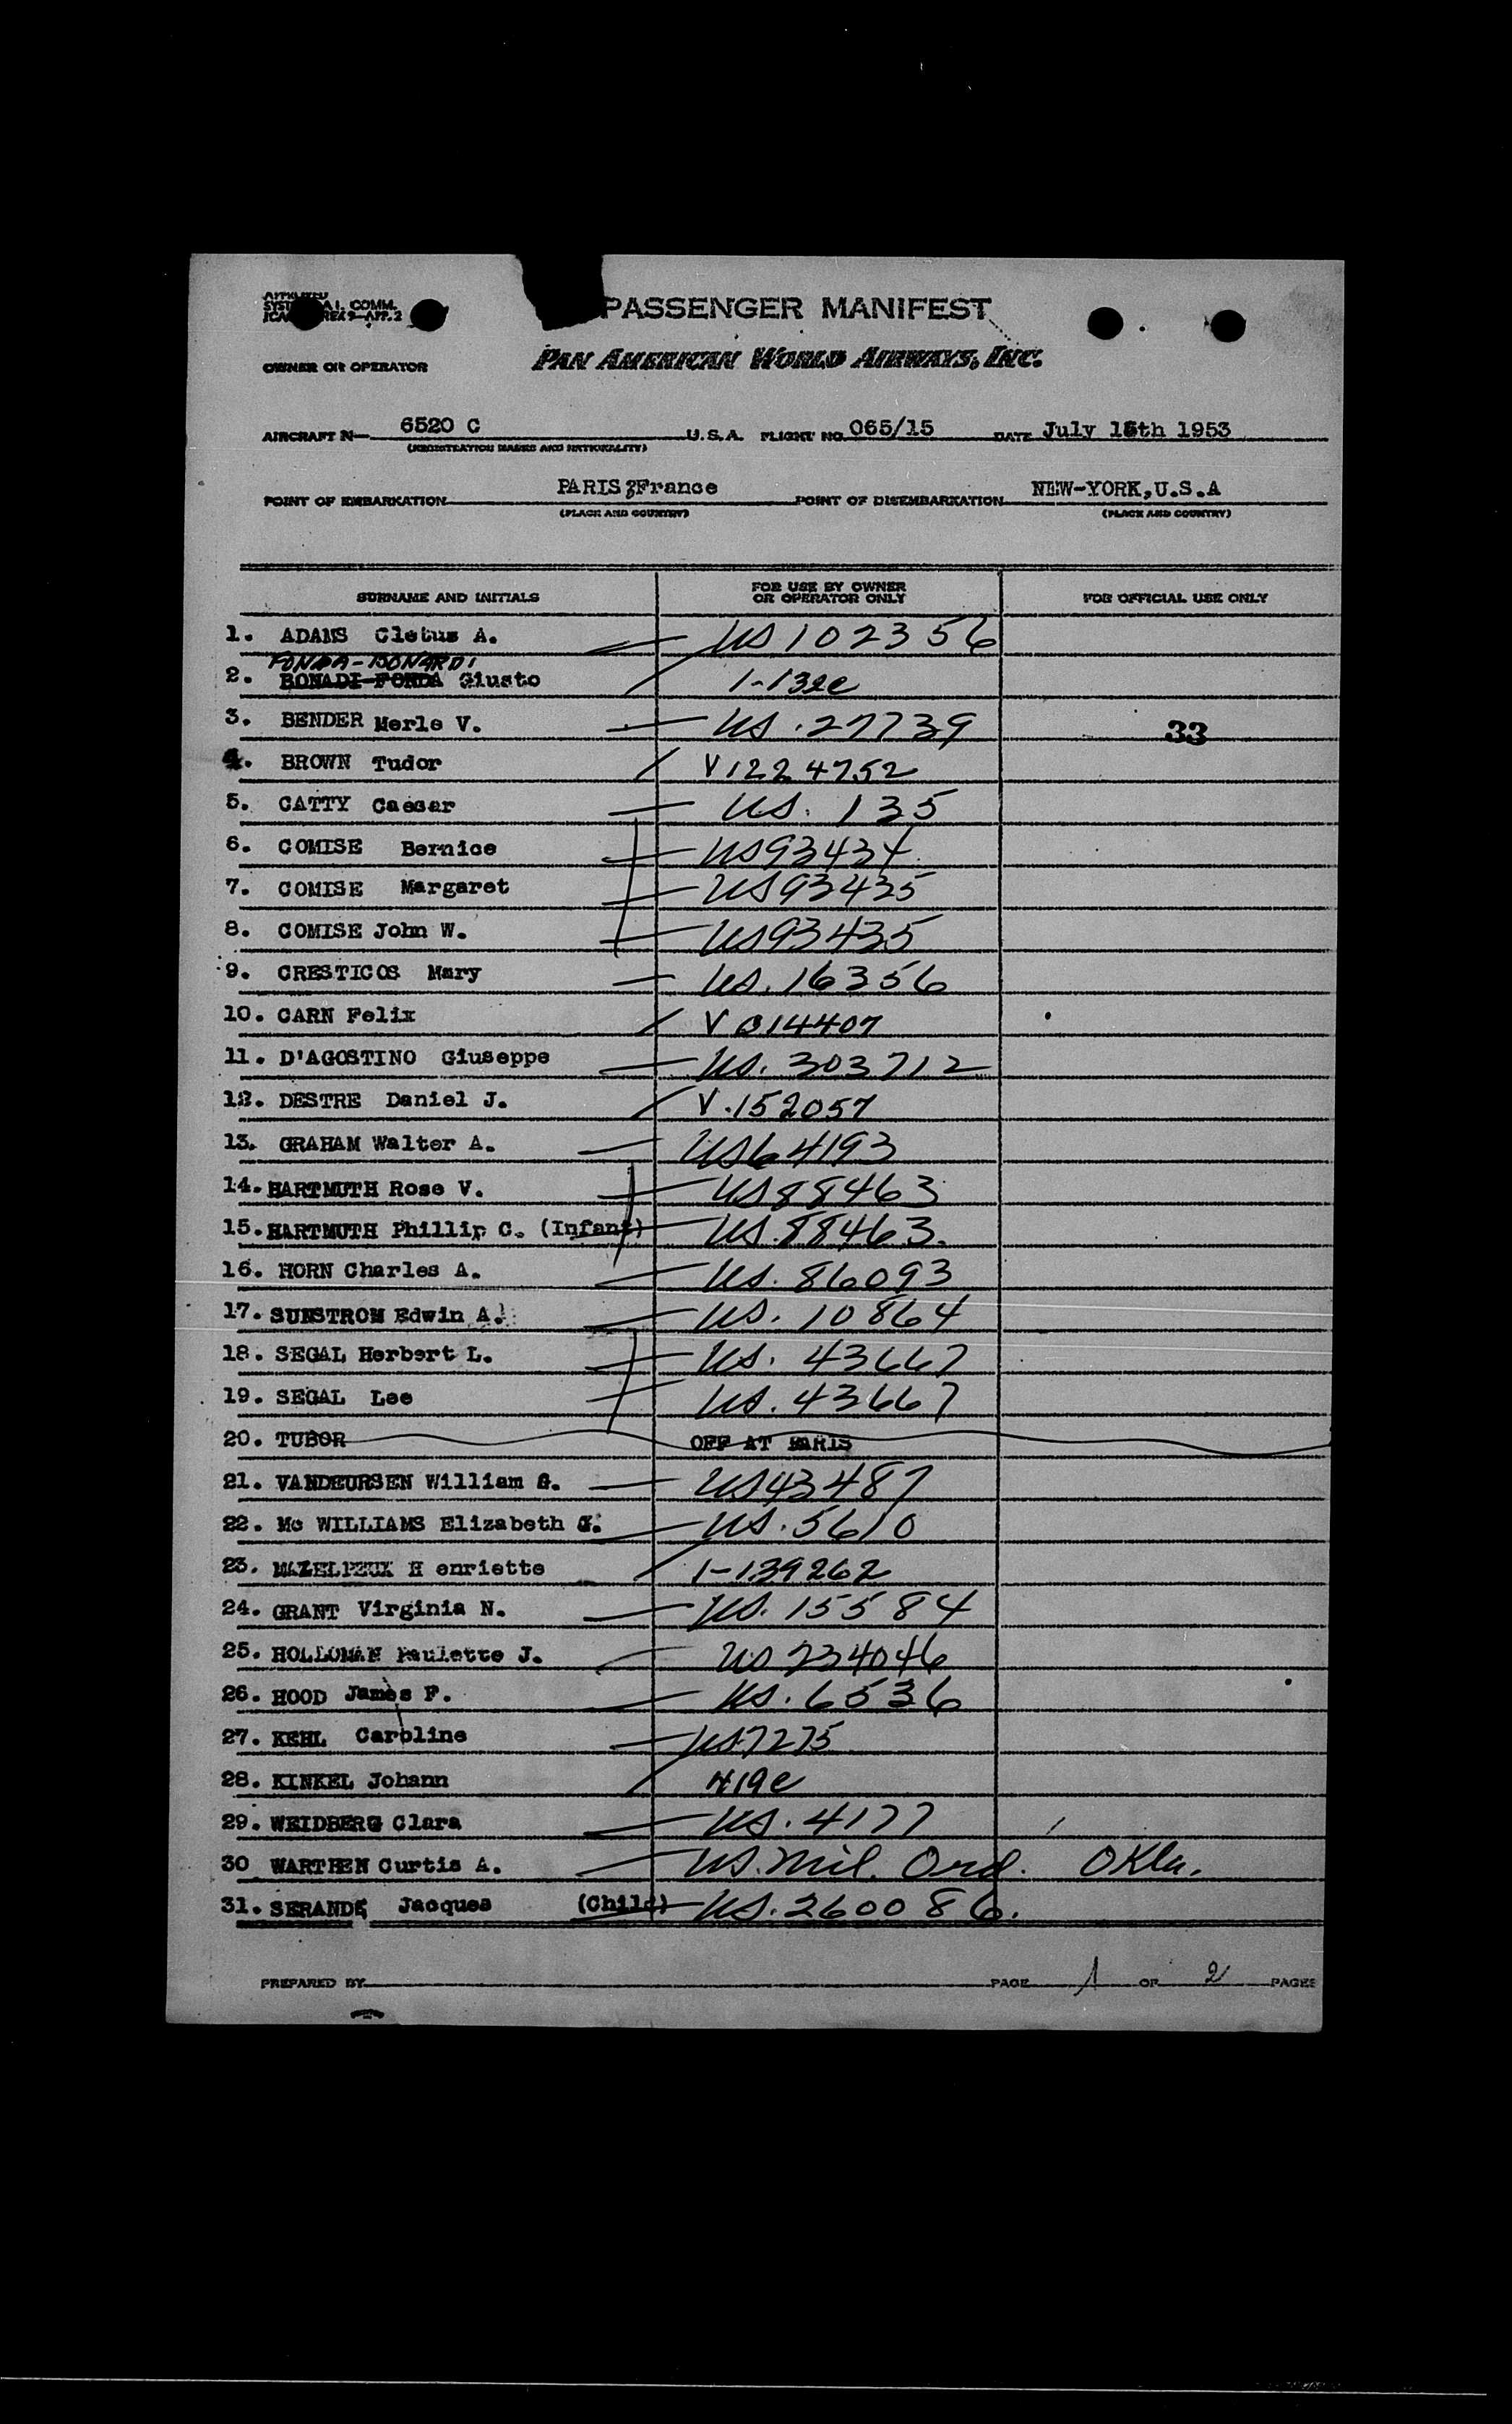 PASSENGER MANIFEST
OWNER OR OPERATOR
PAN AMERICAN WORLD AIRWAYS, INC.
AIRCRAFT N— 6520 C U.S.A. FLIGHT NO. 065/15 DATE July 15th 1953
(REGISTRATION MARKS AND NATIONALITY)
POINT OF EMBARKATION PARIS France POINT OF DISEMBARKATION NEW-YORK,U.S.A
(PLACE AND COUNTRY) (PLACE AND COUNTRY)
SURNAME AND INITIALS FOR USE BY OWNER OR OPERATOR ONLY FOR OFFICIAL USE ONLY
1. ADAMS Cletus A. US 102356
FONDA-BONARDI
2. BONADI-FONDA Giusto 1-132e
3. BENDER Merle V. US.27739 33
4. BROWN Tudor V1224752
5. CATTY Caesar US. 135
6. COMISE Bernice US93434
7. COMISE Margaret US93435
8. COMISE John W. US93435
9. CRESTICOS Mary US.16356
10. CARN Felix V 014407
11. D'AGOSTINO Giuseppe US. 303712
12. DESTRE Daniel J. V.152057
13. GRAHAM Walter A. US64193
14. HARTMUTH Rose V. US88463
15. HARTMUTH Phillip C. (Infant) US.88463.
16. HORN Charles A. US. 86093
17. SUNSTROM Edwin A. US. 10864
18. SEGAL Herbert L. US. 43667
19. SEGAL Lee US. 43667
20. TUBOR OFF AT PARIS
21. VANDEURSEN William G. US43487
22. Mc WILLIAMS Elizabeth G. US.5610
23. MAZELPEUX H enriette 1-139262
24. GRANT Virginia N. US. 15584
25. HOLLOMAN Paulette J. US 234046
26. HOOD James F. US.6536
27. KEHL Caroline US7275
28. KINKEL Johann 419e
29. WEIDBERG Clara US.4177
30 WARTHEN Curtis A. US.Mil. Ord. Okla.
31. SERANDE Jacques (Child) US.260086.
PREPARED BY PAGE 1 OF 2 PAGES